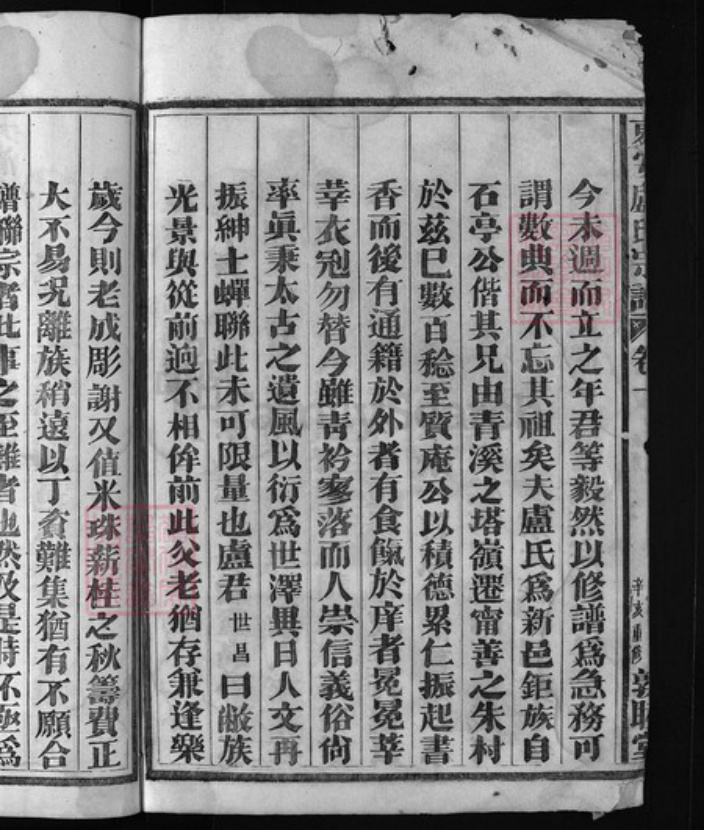 東安盧氏宗譜 卷一 辛亥重修 敦睦堂
今未週而立之年君等毅然以修譜爲急務可
謂數典而不忘其祖矣夫盧氏爲新邑鉅族自
石亭公偕其兄由青溪之塔嶺遷甯善之朱村
於茲巳數百稔至質庵公以積德累仁振起書
香而後有通籍於外者有食餼於庠者冕冕莘
莘衣冠勿替今雖青衿寥落而人崇信義俗尙
率眞秉太古之遺風以衍爲世澤異日人文再
振紳士蟬聯此未可限量也盧君世昌曰敝族
光景與從前逈不相侔前此父老猶存兼逢樂
歲今則老成彫謝又值米珠薪桂之秋籌費正
大不易况離族稍遠以丁貧難集猶有不願合
譜聯宗者此事之至難者也然及是時不亟爲